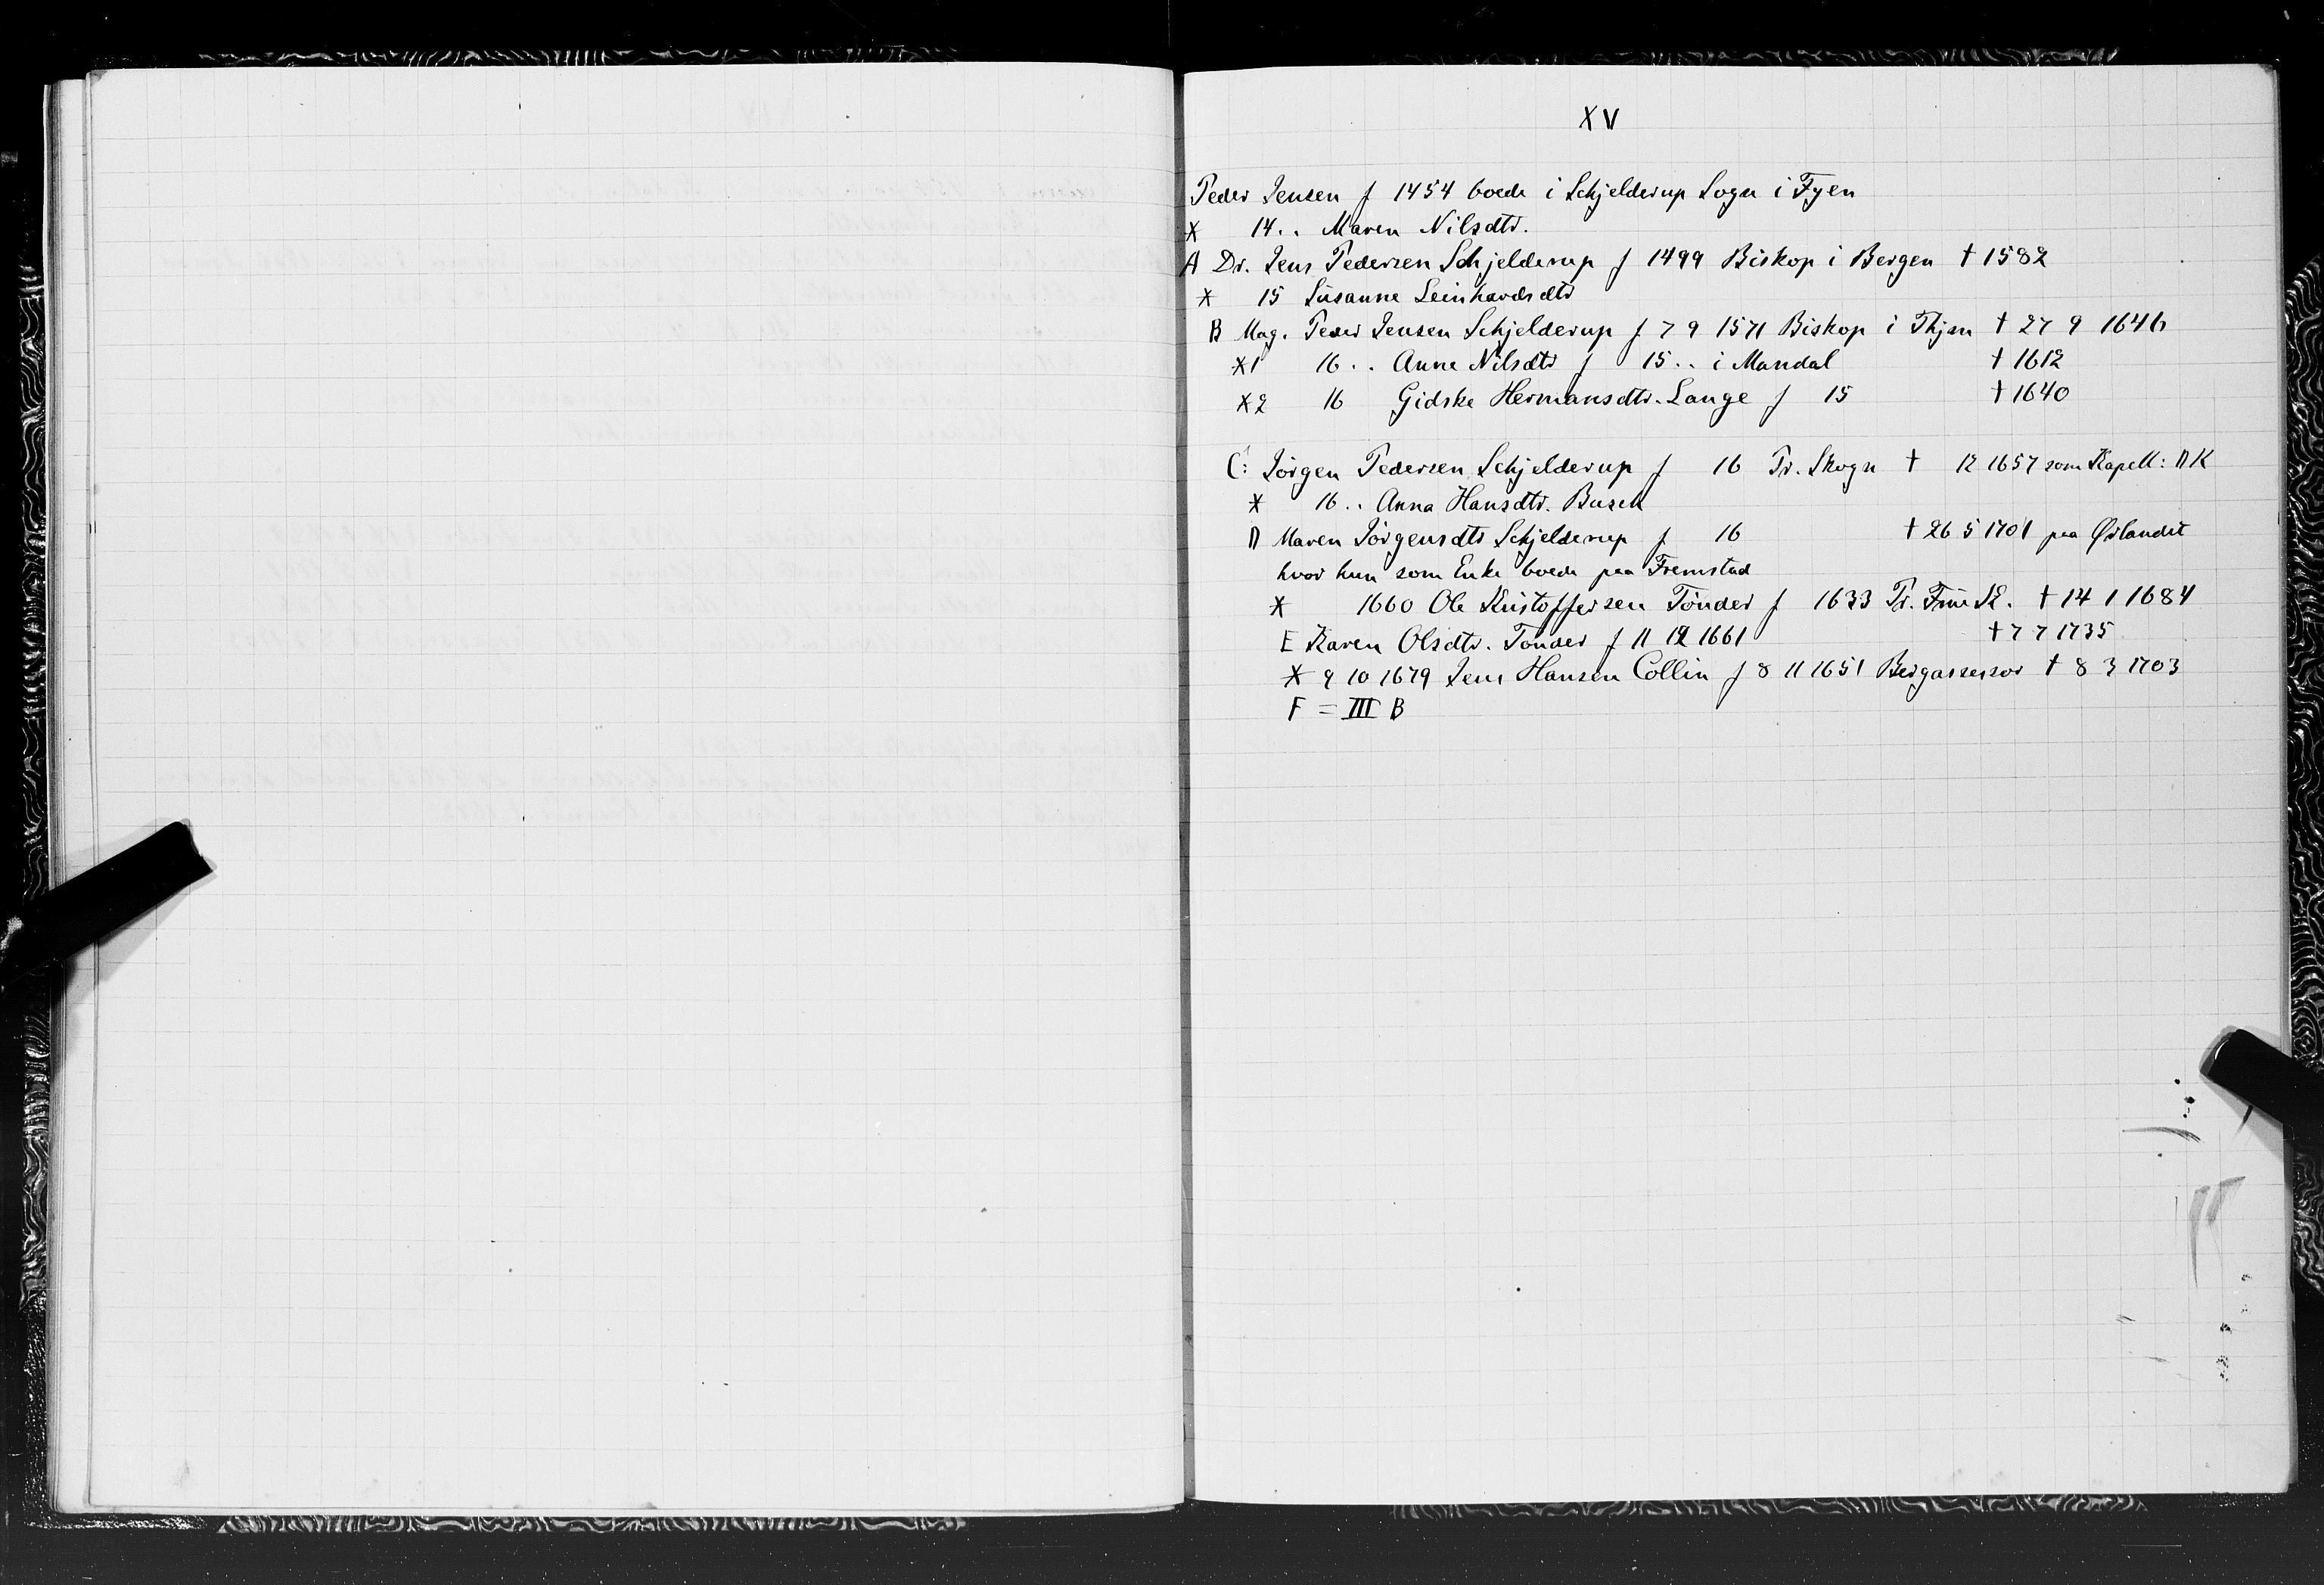 XV
Peder Jensen f 1454 boede i Schjelderup Sogn i Fyen
X 14.. Maren Nilsdtr.
A Dr. Jens Pedersen Schjelderup f 1499 Biskop i Bergen † 1582
X 15 Susanne Leinhardsdtr
B Mag. Peder Jensen Schjelderup f 7 9 1571 Biskop i Thjem † 27 9 1646
X1 16.. Anne Nilsdtr f 15.. i Mandal † 1612
X2 16 Gidske Hermansdtr. Lange f 15 † 1640
C: Jörgen Pedersen Schjelderup f 16 Pr. Skogn † 12 1657 som Kapell: DK
X 16.. Anna Hansdtr. Busch
D Maren Jörgensdtr Schjelderup f 16 † 26 5 1701 paa Ørlandet
hvor hun som Enke boede paa Fremstad
X 1660 Ole Kristoffersen Tönder f 1633 Pr. † 14 1 1684
E Karen Olsdtr. Tönder f 11 12 1661 † 7 7 1735
X 9 10 1679 Jens Hansen Collin f 8 11 1651 Bergassessor † 8 3 1703
F = III B